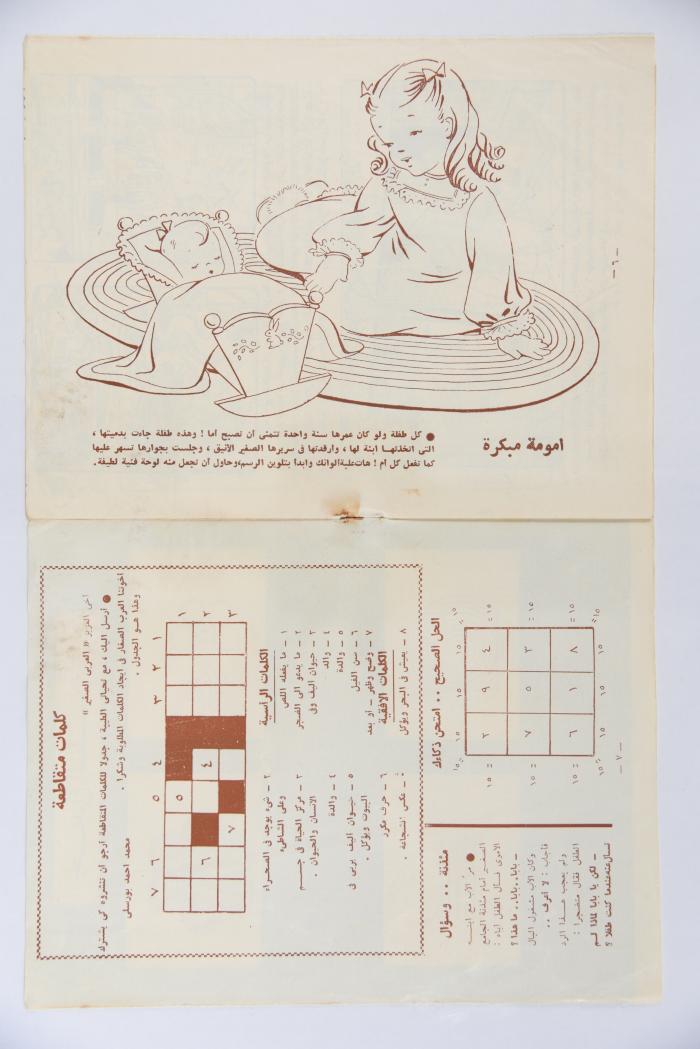 امومة مبكرة
● كل طفلة ولو كان عمرها سنة واحدة تتمنى أن تصبح أما ! وهذه طفلة جاءت بدميتها ،
التى اتخذتها ابنة لها ، وأرقدتها فى سريرها الصغير الأنيق ، وجلست بجوارها تسهر عليها
كما تفعل كل أم ! هات علبة ألوانك وابدأ بتلوين الرسم، وحاول أن تجعل منه لوحة فنية لطيفة.
ـ ٦ ـ
كلمات متقاطعة
اخى العزيز « العربى الصغير »
● أرسل اليك ، مع تحياتى الطيبة ، جدولا للكلمات المتقاطعة أرجو ان تنشروه كى يشترك
اخوتنا العرب الصغار فى ايجاد الكلمات المطلوبة وشكرا .
وهذا هو الجدول .
محمد احمد بورسلى
١ ٢ ٣ ٤ ٥ ٦ ٧
١
٢
٣
٤
٥
٦
٧
الكلمات الرأسية
١ ـ ما يفعله اللص
٢ ـ ما يدعو الى الضجر
٣ ـ حيوان اليف وفى
٤ ـ والد
٥ ـ والدة
٦ ـ سن الفيل
٧ ـ وضح وظهر ـ أو بعد
الكلمات الافقية
٨ ـ يعيش فى البحر ويؤكل
٢ ـ شىء يوجد فى الصحراء
وعلى الشاطىء
٣ ـ مركز الحياة فى جسم
الانسان والحيوان .
٤ ـ والدة
٥ ـ حيوان اليف يربى فى
البيوت ويؤكل .
٦ ـ حرف مكرر
عكس الشجاعة .
الحل الصحيح .. امتحن ذكاءك
٤ ٩ ٢
٣ ٥ ٧
٨ ١ ٦
١٥ = ١٥ = ١٥ =
١٥ ١٥ ١٥
١٥ ١٥ ١٥
ـ ٧ ـ
مئذنة .. وسؤال
● مر الأب مع ابنه
الصغير امام مئذنة الجامع
الاموى فسأل الطفل اباه :
ـ بابا.. بابا.. ما هذا ؟
وكان الأب مشغول البال
فأجاب : لا أعرف ..
ولم يعجب هذا الرد
الطفل فقال متضجرا :
ـ لكن يا بابا لماذا لم
تسأل عنه عندما كنت طفلا ؟